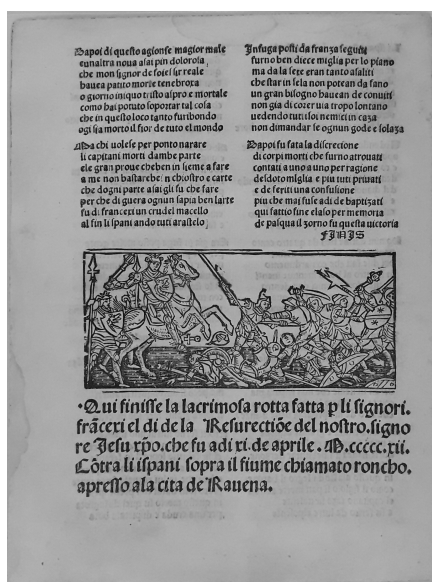 Dapoi di questo agionse magior male
eunaltra noua asai piu dolorosa,
che mon signor de foies sir reale
hauea patito morte tenebroxa
o giorno iniquo tristo aspro e mortale
como hai potuto soportar tal cosa
che in questo loco tanto furibondo
ogi sia morto il fior de tuto el mondo
Ma chi uolese per ponto narare
li capitani morti dambe parte
ele gran proue cheben in sieme a fare
a me non bastarebe in chiostro e carte
che dogni parte asai gli fu che fare
per che di guera ognun sapia ben larte
fu di francexi un crudel macello
al fin li spani ando tuti arastelo,
Infuga posti da franza seguiti
furno ben diece miglia per lo piano
ma da la sete eran tanto asaliti
che star in sela non potean da sano
un gran bisogno hauean de conuiti
non gia di correr uia tropo lontano
uedendo tuti soi nemici in caza
non dimandar se ognun gode e solaza
Dapoi fu fata la discretione
di corpi morti che furno atrouati
contati a uno a uno per ragione
desdoto miglia e piu tuti priuati
e de feriti una confusione
piu che mai fuse adi de baptizati
qui fattio fine elaso per memoria
de pasqua il zorno fu questa uictoria
FINIS
·Qui finisse la lacrimosa rotta fatta p li signori.
frãcexi el di de la Resurectiõe del nostro.signo
re Jesu xp̃o.che fu adi xi.de aprile.M.ccccc.xii.
Cõtra li ispani sopra il fiume chiamato roncho.
apresso ala cita de Rauena.